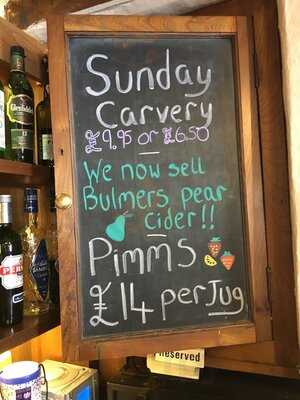 Sunday
Carvery
£9.95 or £6.50
We now sell
Bulmers pear
cider!!
Pimms
£14 per Jug
Reserved